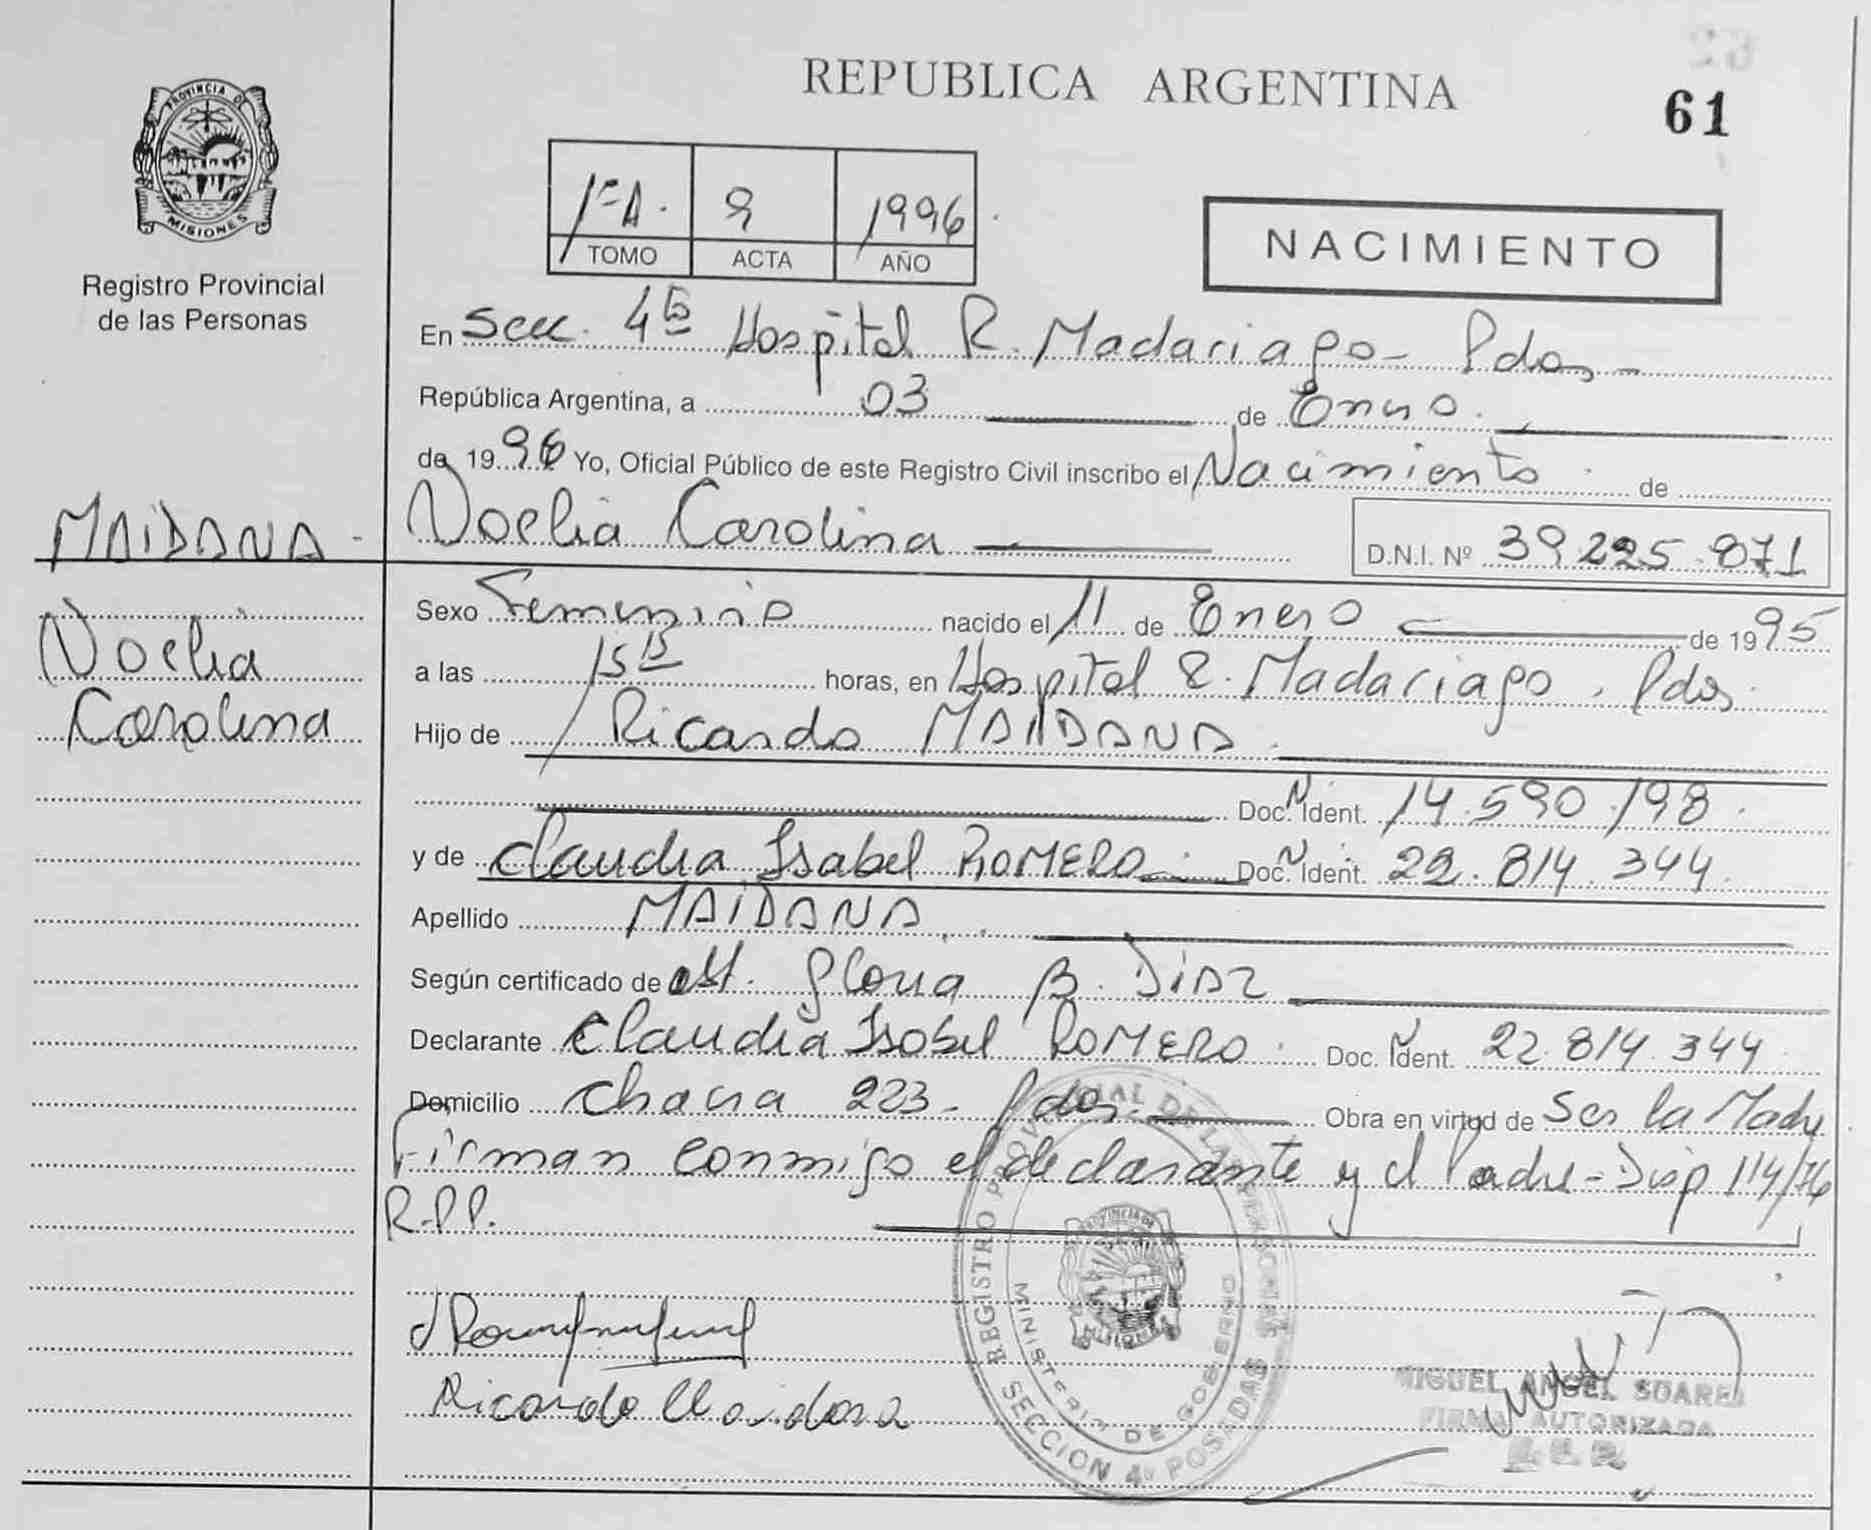 REPUBLICA ARGENTINA
61
PROVINCIA DE MISIONES
Registro Provincial
de las Personas
1ºA. 9 1996
TOMO ACTA AÑO
NACIMIENTO
En Secc. 4ta Hospital R. Madariaga - Pdas -
República Argentina, a 03 de Enero.
de 1996 Yo, Oficial Público de este Registro Civil inscribo el Nacimiento de
MAIDANA - Noelia Carolina
D.N.I. Nº 39.225.871
Noelia
Carolina
Sexo Femenino nacido el 11 de Enero de 1995
a las 15 horas, en Hospital R. Madariaga. Pdas.
Hijo de Ricardo MAIDANA
Doc. Ident. 14.590.198
y de Claudia Isabel ROMERO Doc. Ident. 22.814.344
Apellido MAIDANA
Según certificado de obst. Gloria B. Diaz
Declarante Claudia Isabel ROMERO Doc. Ident. 22.814.344
Domicilio Chacra 223 - Pdas. Obra en virtud de Ser la Madre
Firman conmigo el declarante y el Padre - Disp 114/76
R.P.P.
Ricardo Maidana
REGISTRO PROVINCIAL DE LAS PERSONAS
MINISTERIO DE GOBIERNO
SECCION 4º POSADAS
MIGUEL ANGEL SOARES
FIRMA AUTORIZADA